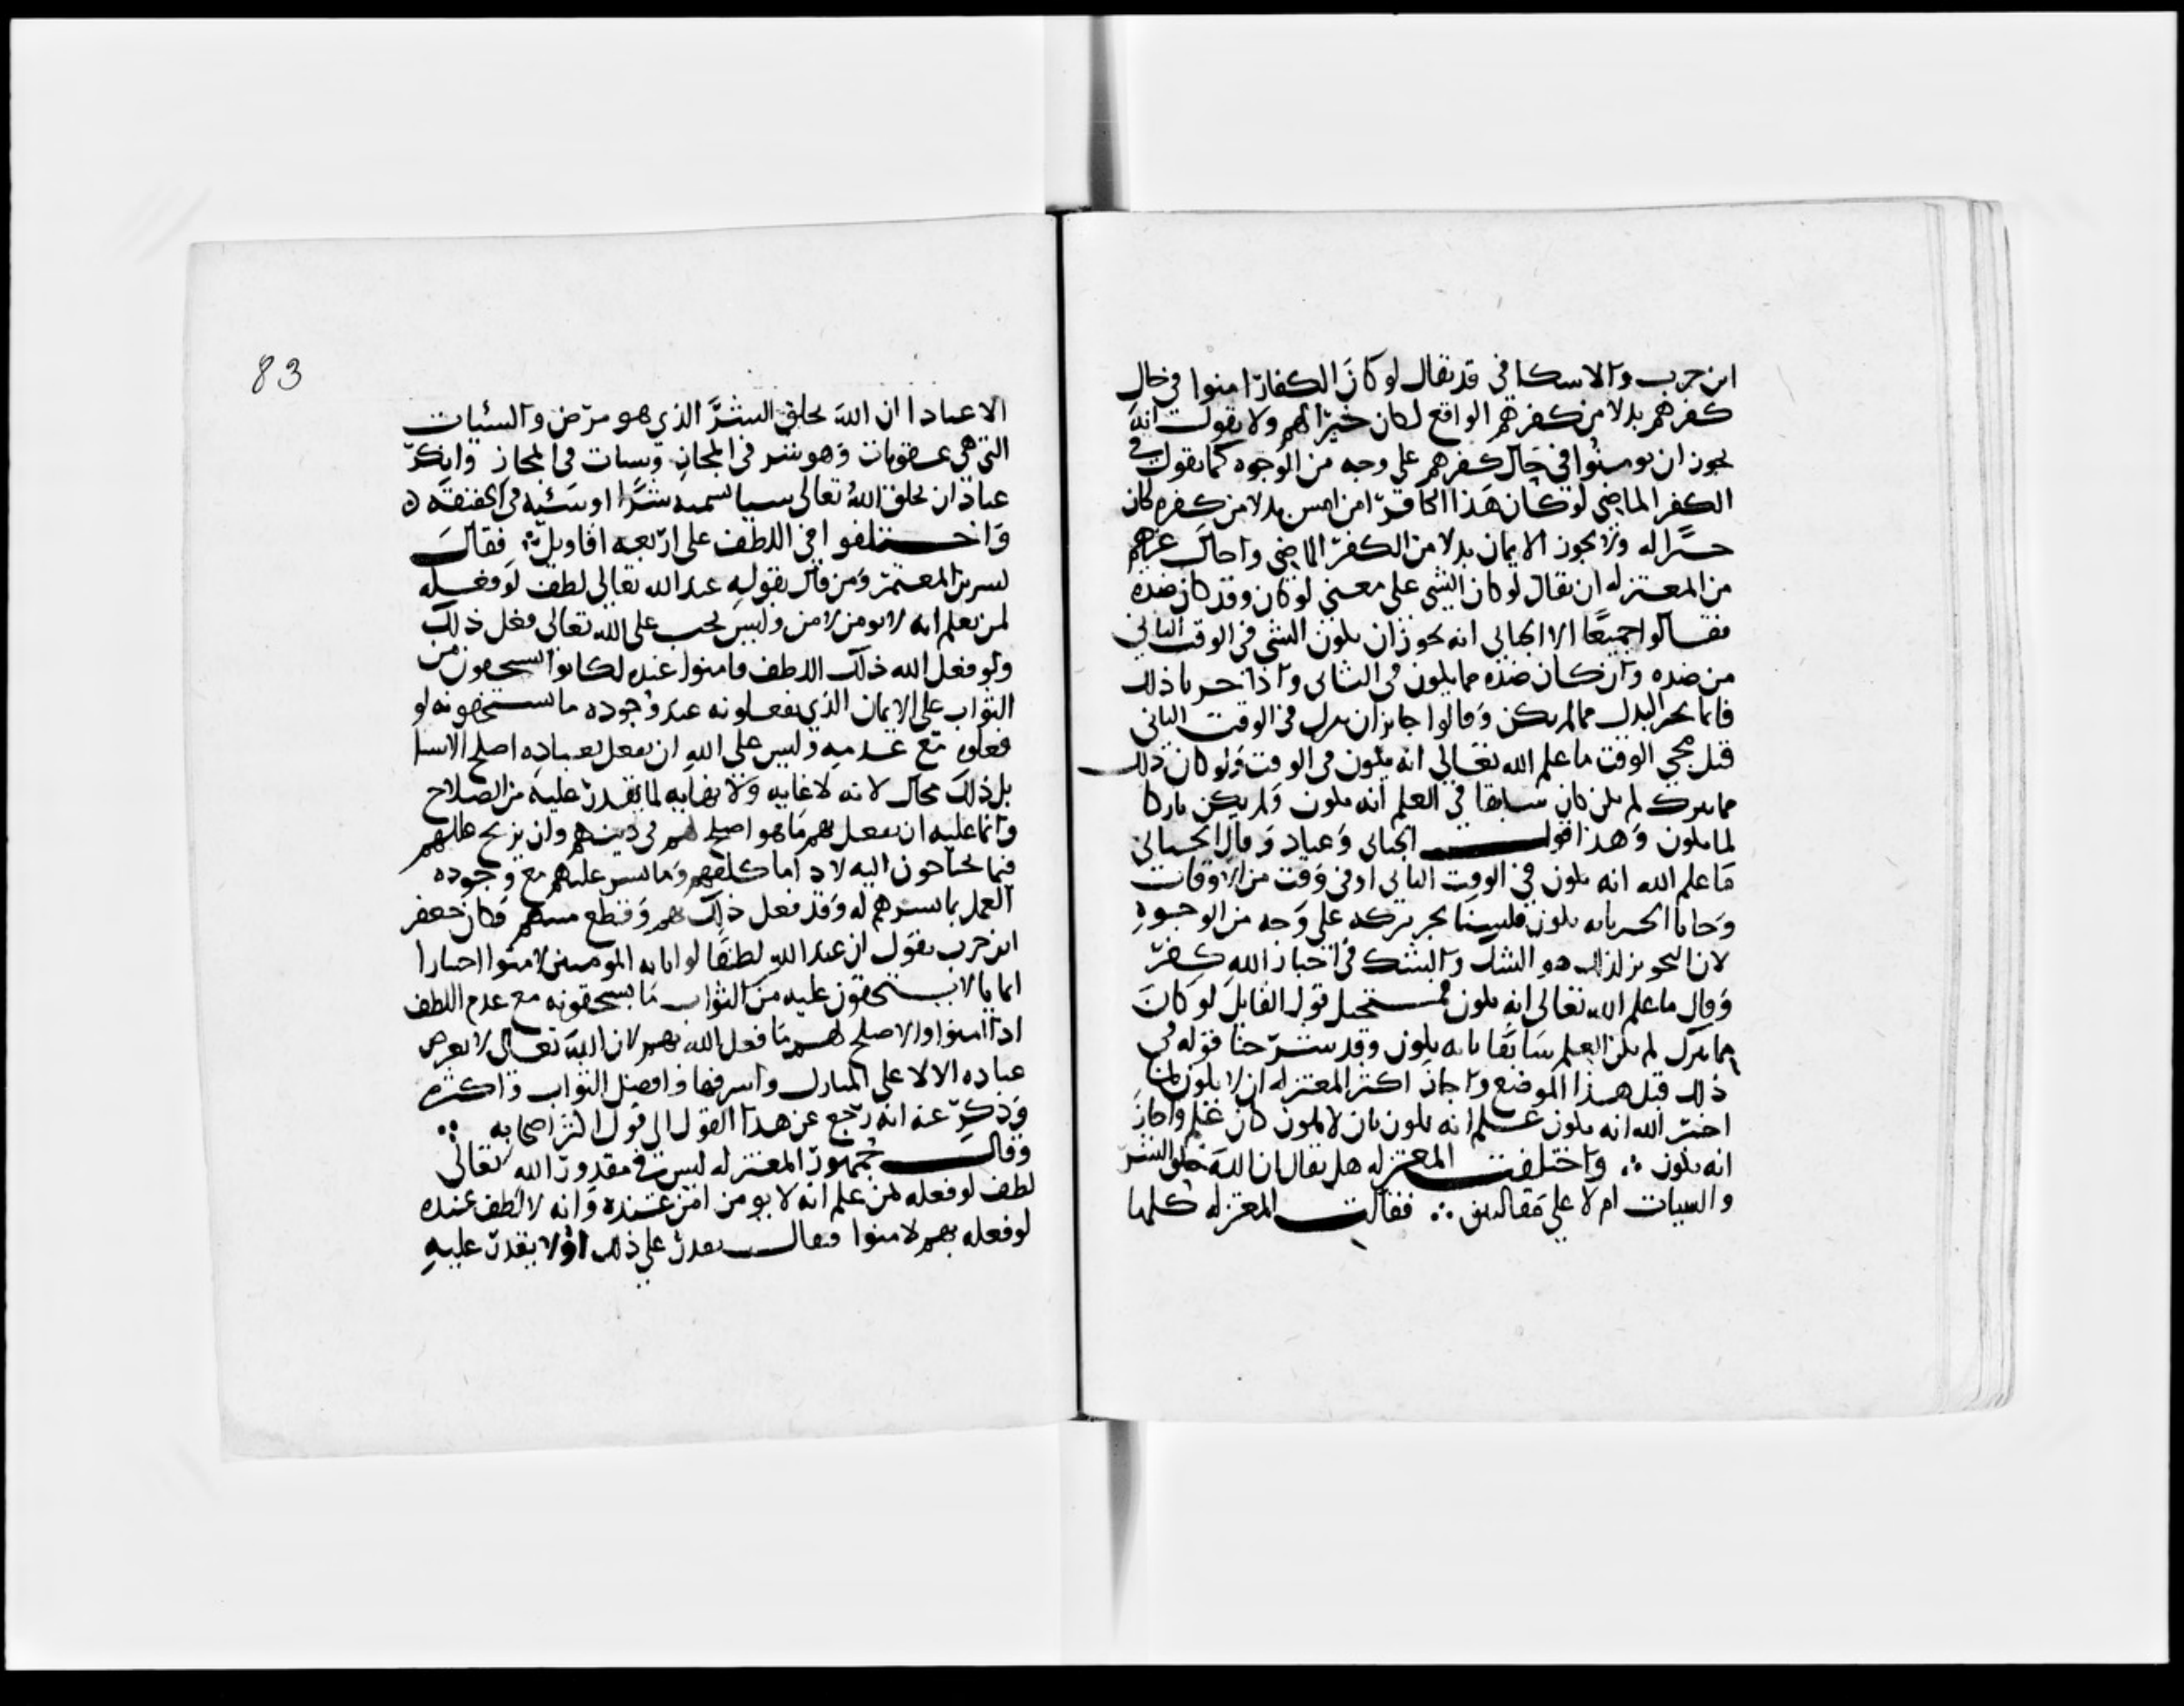 ابن حرب والاسكافي قد يقال لو كان الكفار امنوا في حال
كفرهم بدلا من كفرهم الواقع لكان خيرا لهم ولا يقول انه
يجوز ان يومنوا في حال كفرهم على وجه من الوجوه كما يقول في
الكفر الماضي لو كان هذا الكافر امن امس بدلا من كفره كان
خيرا له ولا يجوز الايمان بدلا من الكفر الماضي واحال غيرهم
من المعتزله ان يقال لو كان الشي على معنى لو كان وقد كان ضده
فقالوا جميعا الا الجبائي انه يجوز ان يكون الشي في الوقت الثاني
من ضده وان كان ضده مما يكون في الثاني واذا خبرنا ذلك
فانما نجيز البدل مما لم يكن وقالوا جايز ان يترك في الوقت الثاني
قبل مجي الوقت ما علم الله تعالى انه يكون في الوقت ولو كان ذلك
مما يترك لم يكن كان سابقا في العلم انه يكون ولم يكن تاركا
لما يكون وهذا قول الجبائي وعباد وقال الجبائي
ما علم الله انه يكون في الوقت الثاني او في وقت من الاوقات
وجانا الخبر بانه يكون فلسنا نجيز تركه على وجه من الوجوه
لان التجويز لذلك هو الشك والشك في اخبار الله كفر
وقال ما علم الله تعالى انه يكون فمستحيل قول القايل لو كان
مما يترك لم يكن العلم سابقا بانه يكون وقد شرحنا قوله في
ذلك قبل هذا الموضع واجاز اكثر المعتزله ان لا يكون لمن
اخبر الله انه يكون علم انه يكون بان لا يكون كان علم واجاز
انه يكون ∴ واختلفت المعتزله هل يقال ان الله خلق الشر
والسيات ام لا على مقالتين ∴ فقالت المعتزله كلها
83
الا عبادا ان الله يخلق الشر الذي هو مرض والسيات
التي هي عقوبات وهو شر في المجاز وسيات في المجاز وانكر
عباد ان يخلق الله تعالى شيا نسميه شرا او سيئه في الحقيقه ه
واختلفوا في اللطف على اربعه اقاويل ∴ فقال
بشر بن المعتمر ومن قال بقوله عند الله تعالى لطف لو فعله
لمن يعلم انه لا يومن لامن وليس يجب على الله تعالى فعل ذلك
ولو فعل الله ذلك اللطف فامنوا عنده لكانوا يستحقون من
الثواب على الايمان الذي يفعلونه عند وجوده ما يستحقونه لو
فعلوه مع عدمه وليس على الله ان يفعل بعباده اصلح الاشيا
بل ذلك محال لانه لا غايه ولا نهايه لما يقدر عليه من الصلاح
وانما عليه ان يفعل بهم ما هو اصلح لهم في دينهم وان يزيح عللهم
فيما يحتاجون اليه لادا ما كلفهم وما تيسر عليهم مع وجوده
العمل بما امرهم له وقد فعل ذلك بهم وقطع مننهم وكان جعفر
ابن حرب يقول ان عند الله لطفا لو اتا به المومنين لامنوا اختيارا
ايمانا لا يستحقون عليه من الثواب ما يستحقونه مع عدم اللطف
اذا امنوا والاصلح لهم ما فعل الله بهم لان الله تعالى لا يعرض
عباده الا لاعلى المنازل واشرفها وافضل الثواب واكثره
وذكر عنه انه رجع عن هذا القول الى قول اكثر اصحابه ∴
وقال جمهور المعتزله ليس في مقدور الله تعالى
لطف لو فعله لمن علم انه لا يومن امن عنده وانه لا لطف عنده
لو فعله بهم لامنوا فيقال يقدر على ذلك او لا يقدر عليه